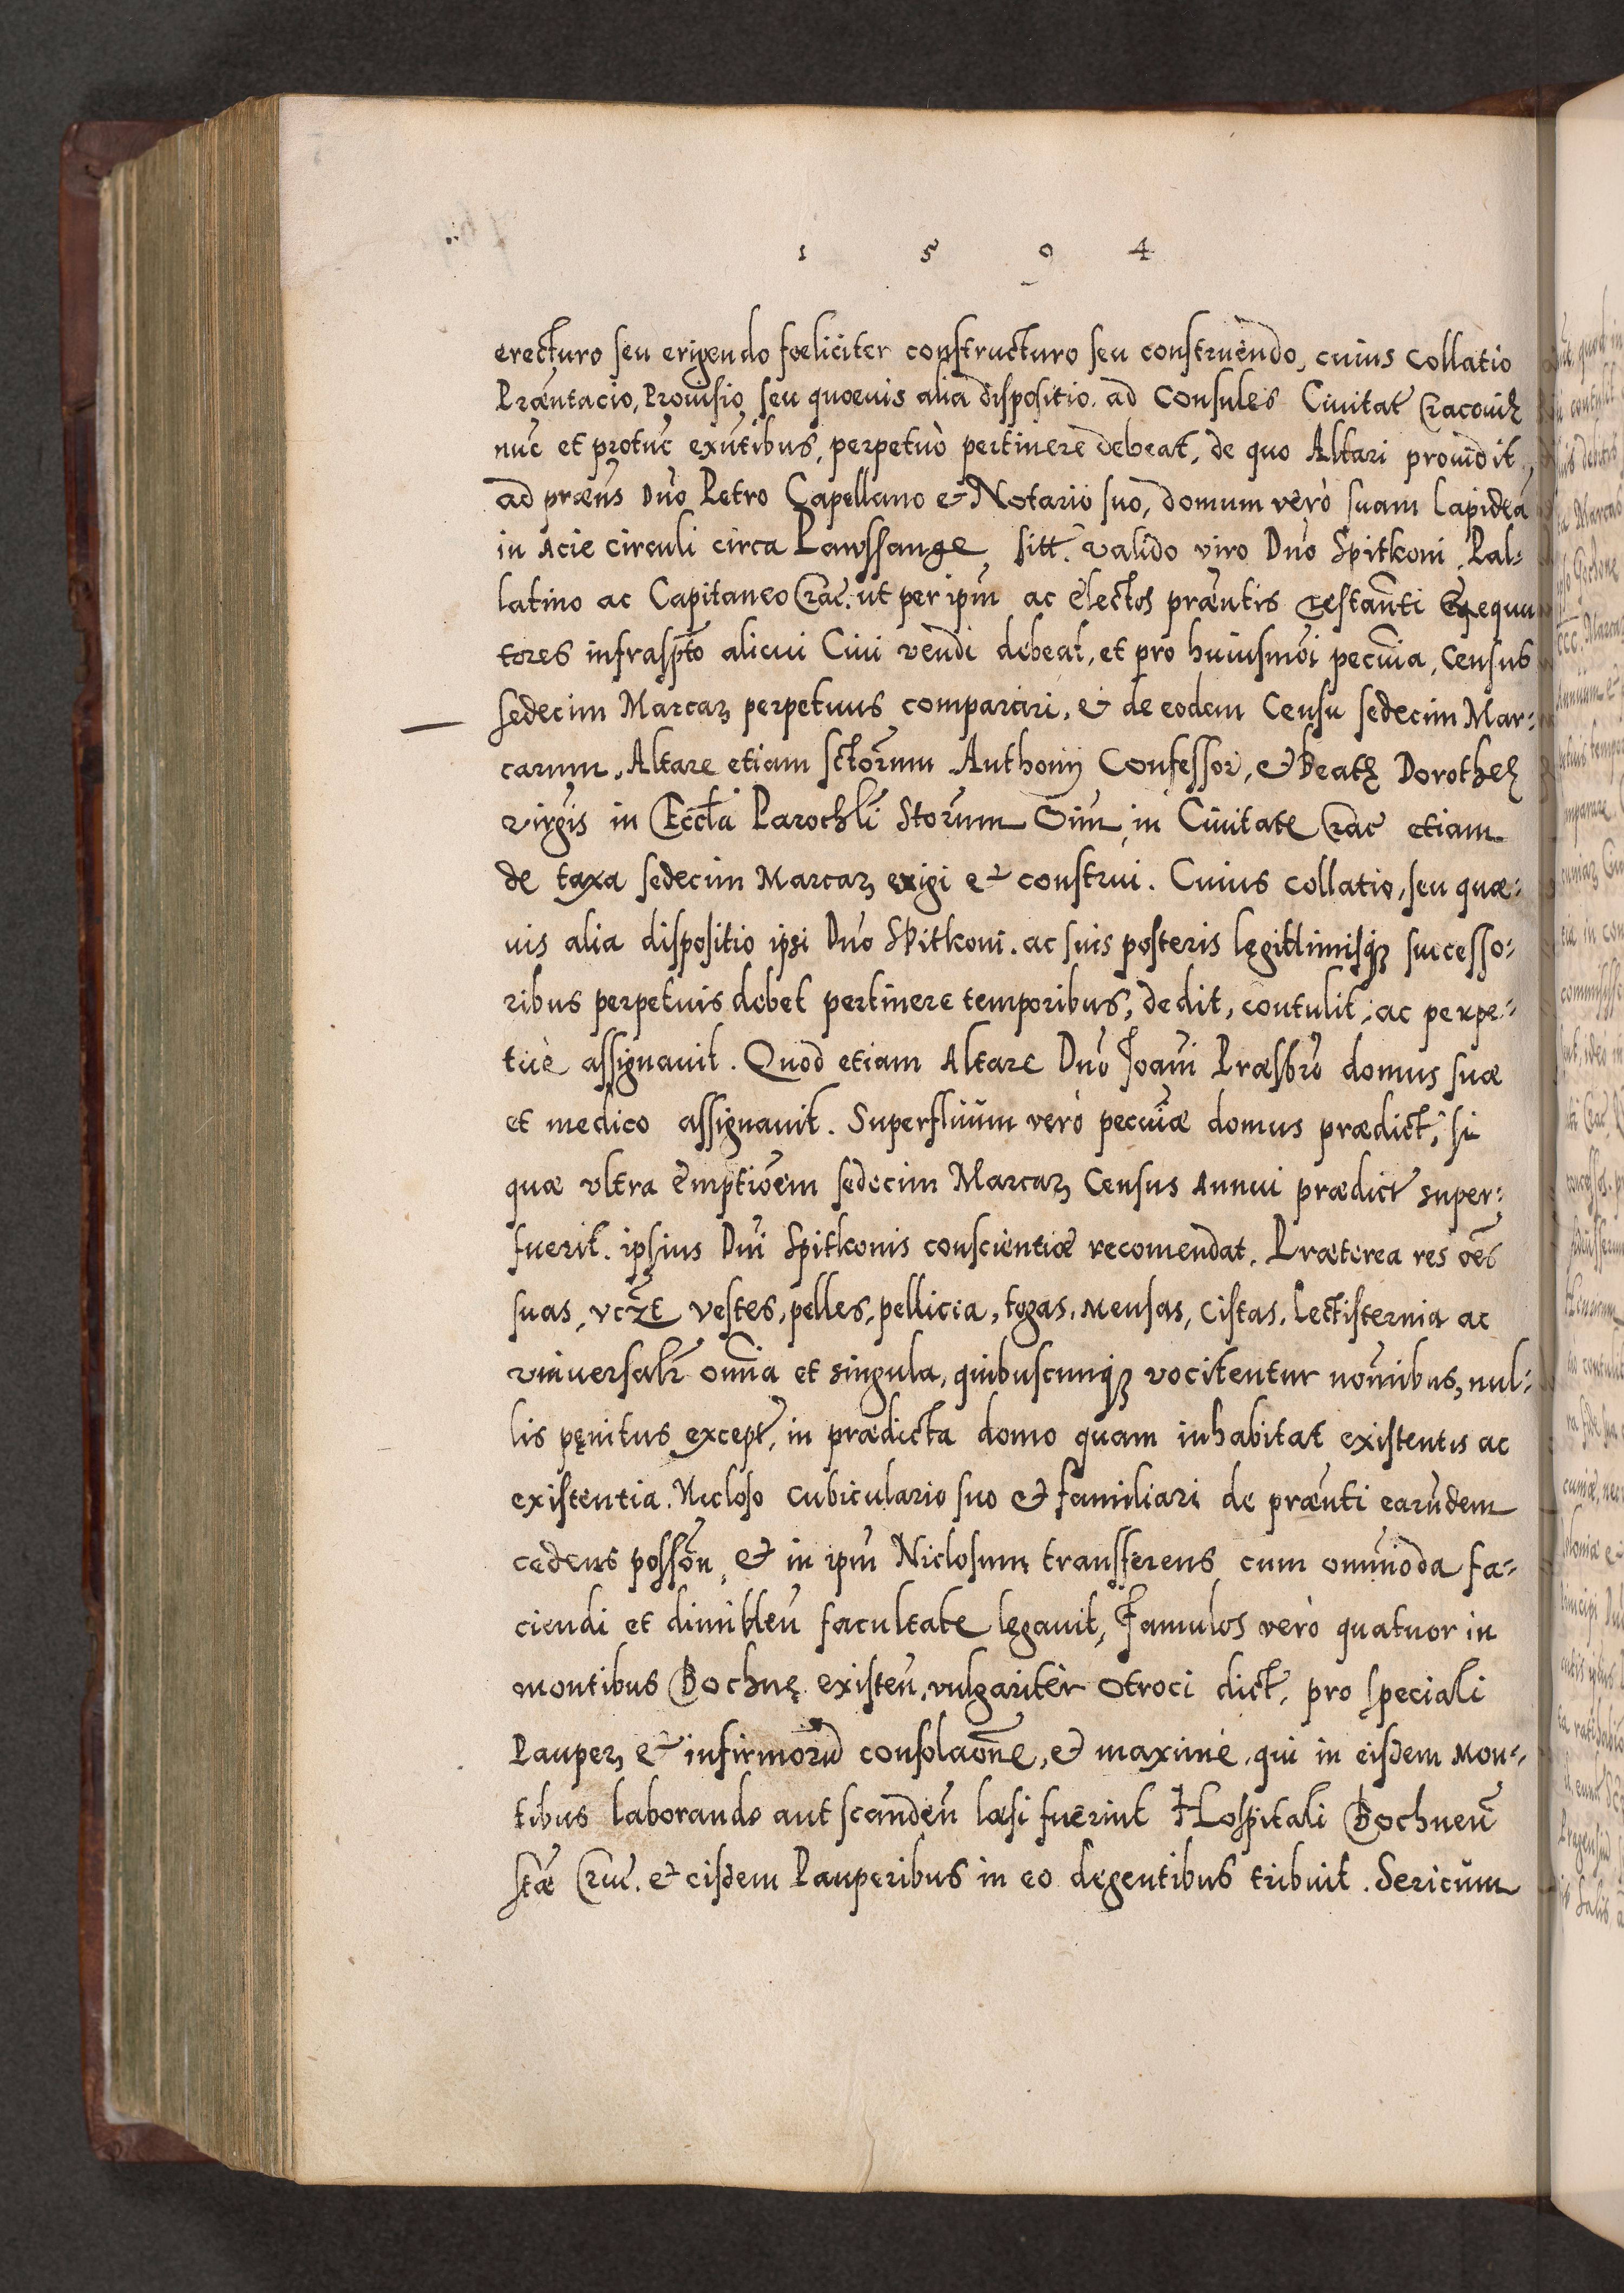 1 5 9 4
erecturo seu erigendo fœliciter constructuro seu construendo, cuius Collatio
Præntacio, Prouisio seu quoeuis alia dispositio ad Consules Ciuitat Cracouię
nūc et protūc exūtibus, perpetuò pertinere debeat, de quo Altari prouidit,
ad præns Dno Petro Capellano & Notario suo, domum verò suam lapideā
in Acie Circuli circa Lawssange sitt. valido viro Dno Spitkoni Pal-
latino ac Capitaneo Crac. ut per ipm̄ ac electos præntis testamti Exequu
tores infrasptō alicui Ciui vendi debeat, et pro huiusmōi pecunia, Census
sedecim Marcaꝝ perpetuus comparari, & de eodem Censu sedecim Mar-
carum, Altare etiam sctōrum Anthonij Confessor, & Beatę Dorotheę
virgis in Ecclā Parochli Storum Oīm in Ciuitate Crac etiam
de taxa sedecim Marcaꝝ erigi & construi. Cuius collatio, seu quæ-
uis alia dispositio ipsi Dno Spitkoni ac suis posteris legittimisqꝫ successo-
ribus perpetuis debet pertinere temporibus, dedit, contulit, ac perpe-
tuè assignauit. Quod etiam Altare Dno Joanni Præsbrō domus suæ
et medico assignauit. Superfluum verò pecuniæ domus prædict, si
quæ vltra emptiōem sedecim Marcaꝝ Census Annui prædict super-
fuerit, ipsius Dni Spitkonis conscientiæ recomendat. Præterea res oēs
suas, vczt vestes, pelles, pellicia, togas, Mensas, Cistas, Lectisternia ac
vniuersalr omīa et singula, quibuscunqꝫ vocitentur nomībus, nul-
lis pęnitus except, in prædicta domo quam inhabitat existentis ac
existentia. Nicloso Cubiculario suo & familiari de prænti earundem
cedens possōn, & in ipm̄ Niclosum transferens cum omnioda fa-
ciendi et dimitten̄ facultate legauit, Famulos verò quatuor in
montibus Bochnę existen̄, vulgaritèr Otroci dict, pro speciali
Pauperꝝ & infirmorū consolaōne, & maximè qui in eisdem Mon-
tibus laborando aut scanden̄ læsi fuerint Hospitali Bochnen̄
stæ Cruc. & eisdem Pauperibus in eo degentibus tribuit. Sericum